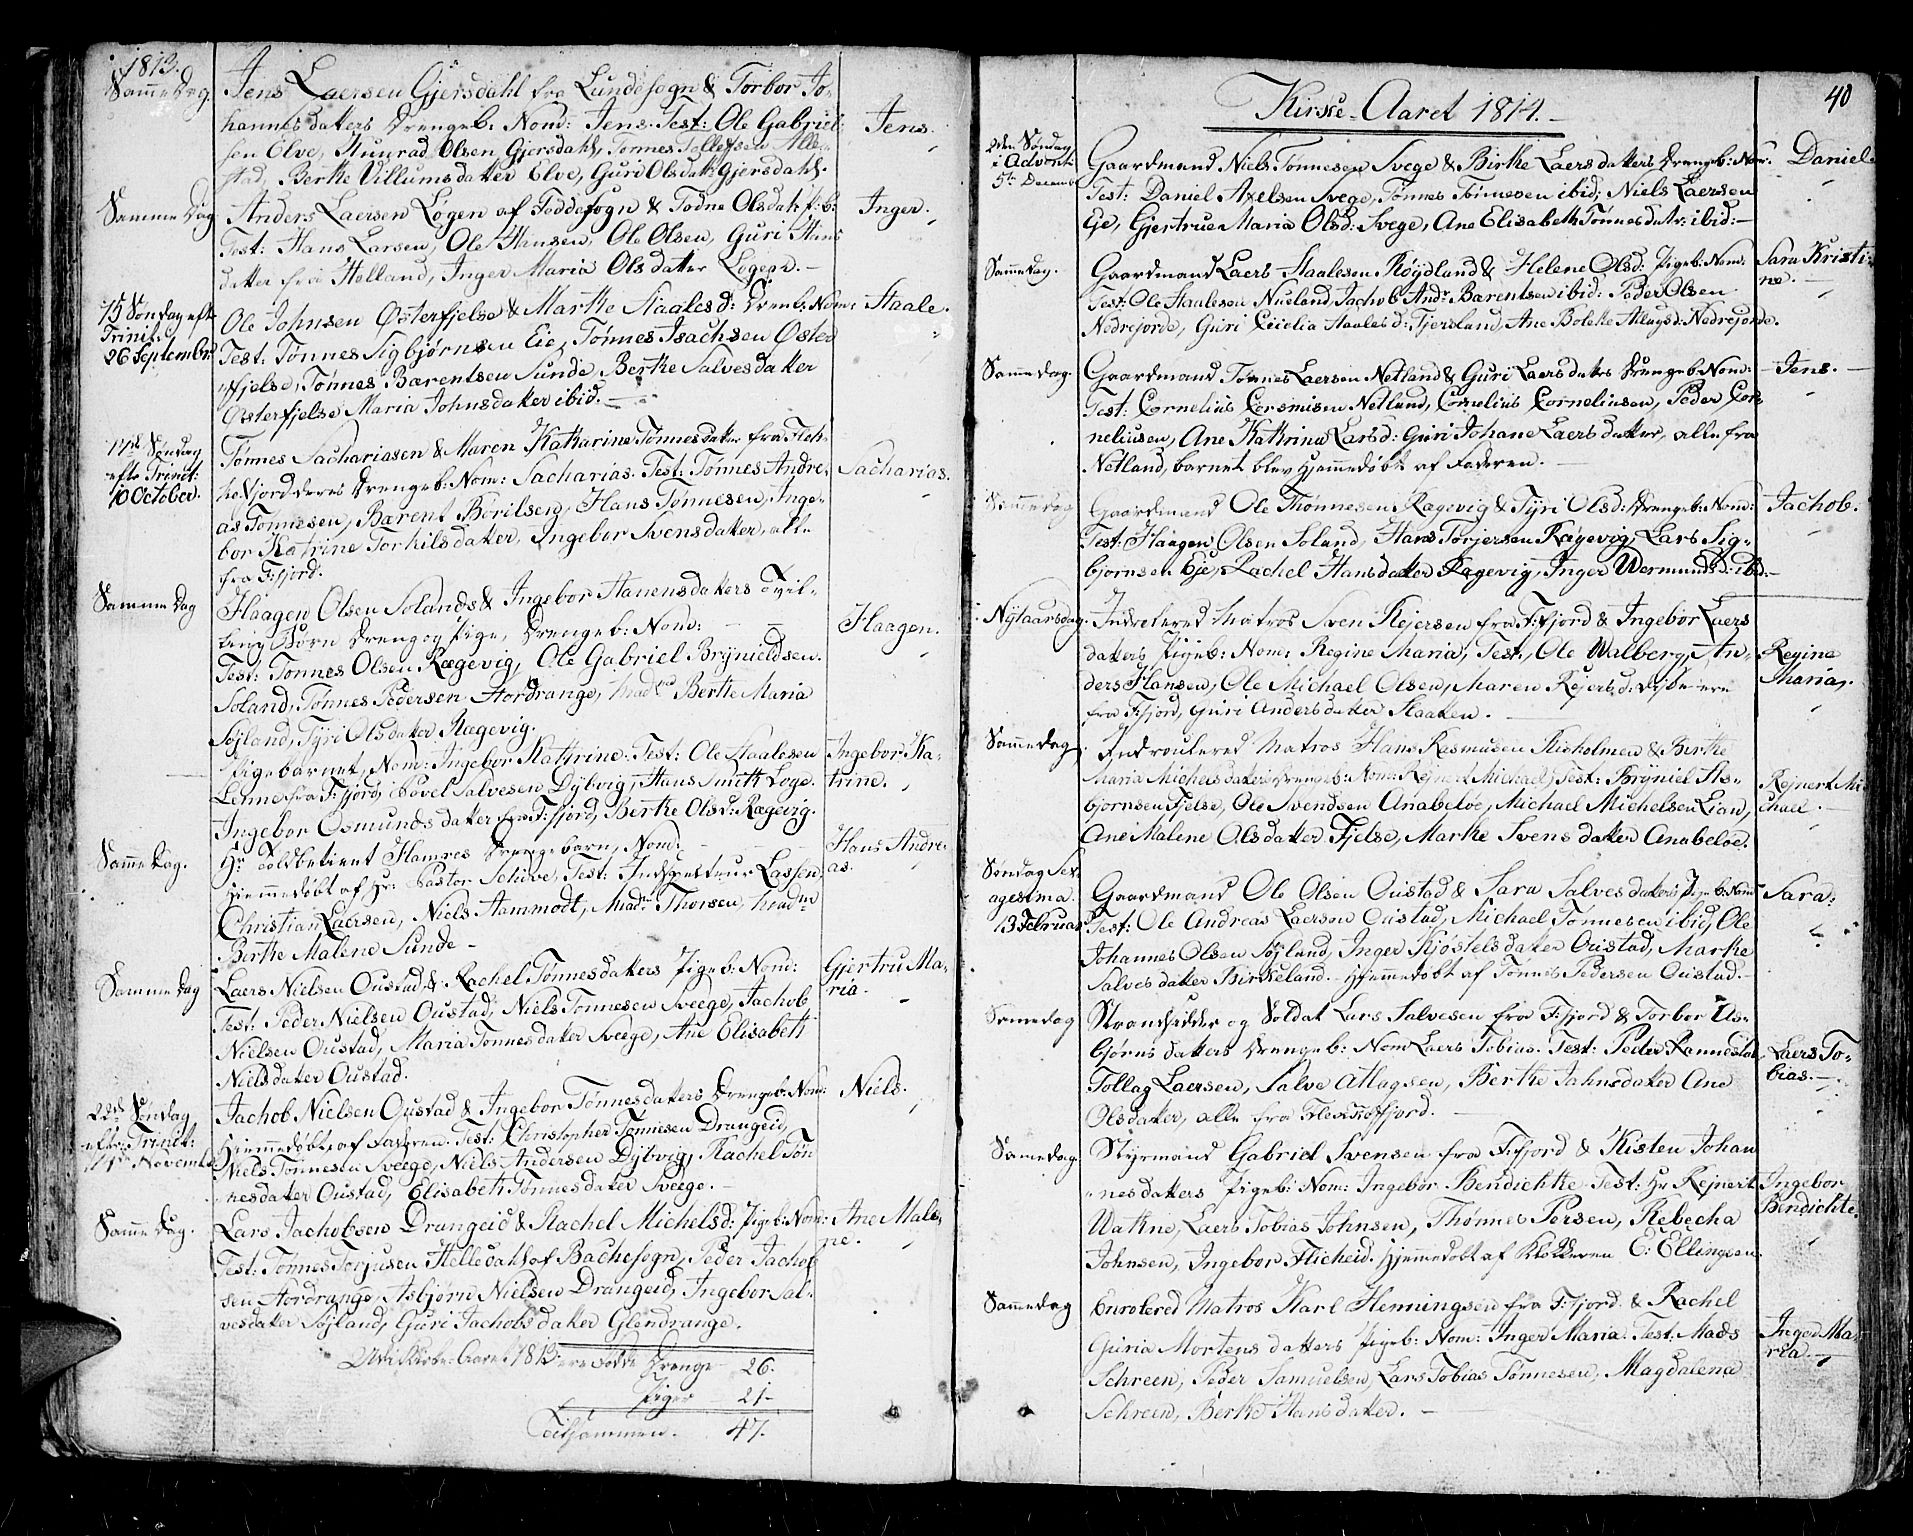 1813.
Samme Dag.
Jens Laersen Gjersdahl fra Lundesogn & Torbor Jo-
hannesdatters Drengeb: Nom: Jens. Test: Ole Gabriel-
sen Elve, Kunrad Olsen Gjersdahl, Tønnes Tollefsen Alle-
stad, Berthe Villumsdatter Elve, Guri Olsdatr Gjersdahl.
Jens.
Samme Dag
Anders Laersen Løgen af Foddesogn & Todne Olsdatr: P:b:
Test: Hans Larsen, Ole Hansen, Ole Olsen, Guri Hans
datter fra Helland, Inger Maria Olsdatter Løgen.
Inger.
15 Søndag eft
Trinit:
26 Septembr:
Ole Johnsen Østerfjelse & Marthe Staalesd: Drengb: Nom:
Test: Tønnes Sigbjørnsen Eie, Tønnes Isachsen Øster
fjelse, Tønnes Barentsen Sunde, Berthe Salvesdatter
Østerfjelse Maria Johnsdatter ibid.
Staale.
17de Søndag
efter Trinit:
10 October.
Tønnes Sachariasen & Maren Katharine Tønnesdatter fra Flek-
kefjord deres Drengeb: Nom: Sacharias. Test: Tønnes Andre-
as Tønnesen, Barent Borilsen, Hans Tønnesen, Inge-
bor Katrine Torkilsdatter, Ingebor Svensdatter, alle
fra F:fjord.
Sacharias.
Samme Dag
Haagen Olsen Solands & Ingebor Stanensdatters Tvil-
ling Børn Dreng og Pige, Drengeb: Nom:
Test: Tønnes Olsen Rægevig, Ole Gabriel Brynieldsen
Soland, Tønnes Pedersen Hordrange, Madme Berthe Maria
Søyland, Tyri Olsdatter Rægevig.
Haagen.
Pigebarnet, Nom: Ingebor Kathrine. Test: Ole Staalesen
Lenne fra F:fjord, Povel Salvesen Dybvig, Hans Smith Loge
Ingebor Osmundsdatter fra F:fjord, Berthe Olsd: Rægevig.
Ingebor Ka-
trine.
Samme Dag.
Hr Toldbetient Hamres Drengebarn, Nom:
Hjemmedøbt af Hr: Pastor Schive, Test: Indspecteur Lassen,
Christian Laersen, Niels Aammodt, Madm Thorsen, Madm
Berthe Malene Sunde
Hans Andre-
as.
Samme Dag
Laers Nielsen Oustad & Rachel Tønnesdatters Pigeb: Nom:
Test: Peder Nielsen Oustad, Niels Tønnesen Sveege, Jachob
Nielsen Oustad, Maria Tønnesdatter Sveege, Ane Elisabeth
Nielsdatter Oustad.
Gjertru Ma-
ria.
22de Søndag
efter Trinit:
14de Novembr
Jachob Nielsen Oustad & Ingebor Tønnesdatters Drengeb: Nom:
Hjemmedøbt af Faderen. Test: Christopher Tønnesen Drangeid,
Niels Tønnesen Sveege, Niels Andersen Dybvig, Rachel Tøn
nesdatter Oustad, Elisabeth Tønnesdatter Sveege.
Niels.
Samme Dag.
Lars Jachobsen Drangeid & Rachel Michelsd: Pigeb: Nom:
Test: Tønnes Torjusen Helledahl af Bachesogn, Peder Jachob
sen Hordrange, Asbjørn Nielsen Drangeid, Ingebor Sal-
vesdatter Søyland, Guri Jachobsdatter Glendrange.
Ane Male-
ne.
Udi Kirke-Aaret 1813 ere Fødde Drenge 26.
Piger 21.
Tilsammen. 47.
40
Kirke-Aaret 1814.
2den Søndag
i Advent
5te Decembr
Gaardmand Niels Tønnesen Svege & Birthe Laersdatters Drengeb: Nom:
Test: Daniel Axelsen Svege, Tønnes Tønnesen ibid: Niels Laersen
Eje, Gjertrue Maria Olsd: Svege, Ane Elisabeth Tønnesdatr: ibid:
Daniel.
Samme Dag.
Gaardmand Laers Staalesen Røysland & Helene Olsd: Pigeb: Nom:
Test: Ole Staalesen Nueland, Jachob Andr: Barentsen ibid: Peder Olsen
Nedrejorde, Guri Cicelia Staalesd: Fjersland, Ane Bolethe Atlagsd: Nedrejorde.
Sara Kristi-
ne.
Samme Dag.
Gaardmand Tønnes Laersen Netland & Guri Laersdatters Drengeb: Nom:
Test: Cornelius Corsmisen Netland, Cornelius Corneliusen, Peder Cor-
neliusen, Ane Kathrina Larsd: Guri Johane Laersdatter, alle fra
Netland, barnet blev hjemmedøbt af Faderen.
Jens.
Samme Dag
Gaardmand Ole Thønnesen Rægevig & Tyri Olsd: Drengeb: Nom:
Test: Haagen Olsen Soland, Hans Torjersen Rægevig, Lars Sig-
bjørnsen Eje, Rachel Hansdatter Rægevig, Inger Wermundsd: ibid:
Jachob.
Nytaarsdag
Indrolered Matros Sven Rejersen fra F:fjord & Ingebor Laers
datters Pigeb: Nom: Regine Maria, Test: Ole Walberg, An-
ders Hansen, Ole Michael Olsen, Maren Rejersd:
fra F:fjord, Guri Andersdatter Staaken.
Regine
Maria.
Samme Dag.
Indroulered Matros Hans Rasmusen Kirkolmen & Birthe
Maria Michelsdatters Drengeb: Nom: Rejnert Michael, Test: Bryniel As-
bjørnsen Fjelse, Ole Svendsen Anabeløe, Michael Michelsen Lian,
Ane Malene Olsdatter Fjelse, Marthe Svensdatter Anabeløe.
Rejnert Mi
chael.
Søndag Sex-
agesima
13 Februar
Gaardmand Ole Olsen Oustad & Sara Salvesdatters Pigeb: Nom:
Test: Ole Andreas Laersen Oustad, Michael Tønnesen ibid, Ole
Johannes Olsen Søyland, Inger Kjøstelsdatter Oustad, Marthe
Salvesdatter Birkeland. Hjemmedøbt af Tønnes Pedersen Oustad.
Sara.
Samme dag
Strandsidder og Soldat Lars Salvesen fra F:fjord & Torbor As-
bjørnsdatters Drengeb: Nom Laers Tobias. Test: Peder Rannestad,
Tollag Laersen, Salve Atlagsen, Berthe Jahnsdatter Ane
Olsdatter, alle fra Flekkefjord.
Laers To-
bias.
Samme dag
Styrmand Gabriel Svensen fra F:fjord & Kisten Johan
nesdatters Pigeb: Nom: Ingebor Bendichte Test: Hr Rejnert
Wathne, Laers Tobias Johnsen, Thønnes Persen, Rebecha
Johnsen, Ingebor Flicheid. Hjemmedøbt af Klokkeren E: Ellingsen.
Ingebor
Bendichte.
Samme dag
Enrolered Matros Karl Henningsen fra F:fjord & Rachel
Guria Mortensdatters Pigeb: Nom: Inger Maria Test: Mads
Schreen, Peder Samuelsen, Lars Tobias Tønnesen, Magdalena
Schreen, Berthe Hansdatter.
Inger Ma-
ria.